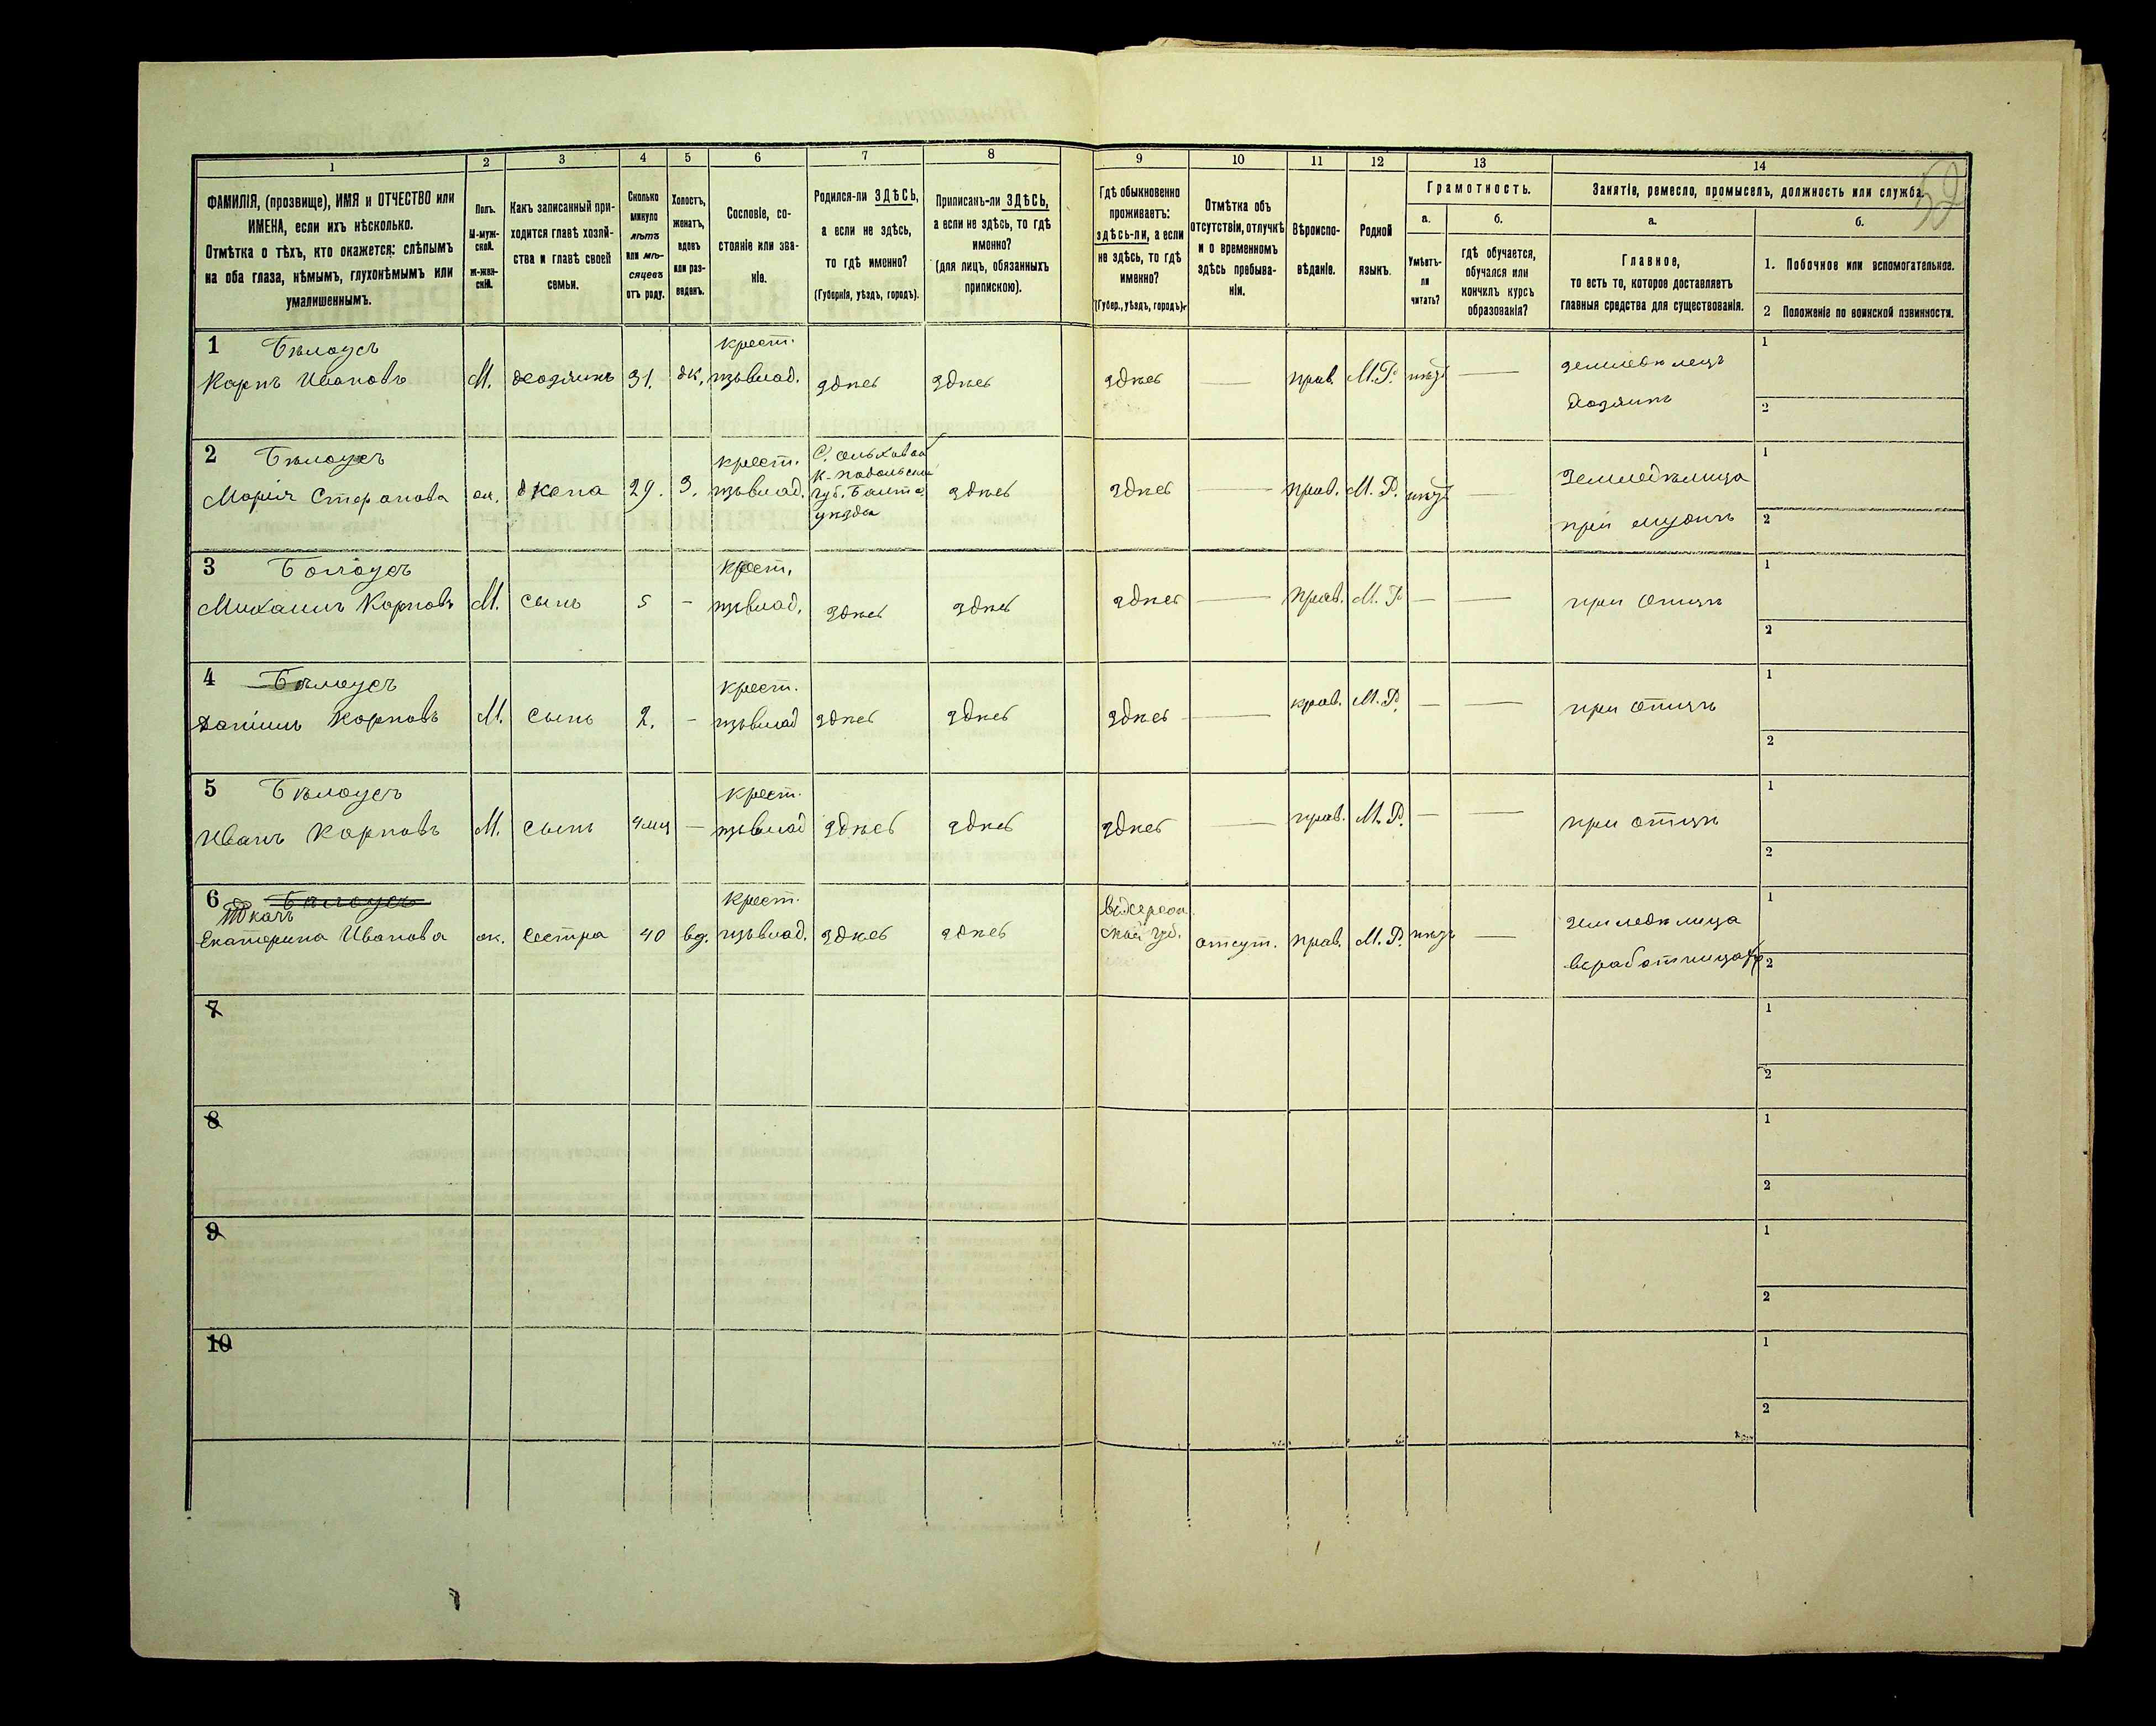 1 2 3 4 5 6 7 8 9 10 11 12 13 14
ФАМИЛІЯ, (прозвище), ИМЯ и ОТЧЕСТВО или
ИМЕНА, если ихъ нѣсколько.
Отмѣтка о тѣхъ, кто окажется: слѣпымъ
на оба глаза, нѣмымъ, глухонѣмымъ или
умалишеннымъ.
Полъ.
М-муж-
ской.
Ж-жен-
скій.
Какъ записанный при-
ходится главѣ хозяй-
ства и главѣ своей
семьи.
Сколько
минуло
лѣтъ
или мѣ-
сяцевъ
отъ роду.
Холостъ,
женатъ,
вдовъ
или раз-
веденъ.
Сословіе, со-
стояніе или зва-
ніе.
Родился-ли ЗДѢСЬ,
а если не здѣсь,
то гдѣ именно?
(Губернія, уѣздъ, городъ).
Приписанъ-ли ЗДѢСЬ,
а если не здѣсь, то гдѣ
именно?
(для лицъ, обязанныхъ
припискою).
Гдѣ обыкновенно
проживаетъ:
здѣсь-ли, а если
не здѣсь, то гдѣ
именно?
(Губер., уѣздъ, городъ).
Отмѣтка объ
отсутствіи, отлучкѣ
и о временномъ
здѣсь пребыва-
ніи.
Вѣроиспо-
вѣданіе.
Родной
языкъ.
Грамотность.
а.
Умѣетъ-
ли
читать?
б.
гдѣ обучается,
обучался или
кончилъ курсъ
образованія?
Занятіе, ремесло, промыселъ, должность или служба.
а.
Главное,
то есть то, которое доставляетъ
главныя средства для существованія.
б.
1. Побочное или вспомогательное.
2 Положеніе по воинской повинности.
1 Бѣлоусъ крест. 1
Карпъ Ивановъ М. хозяинъ 31. ж. здѣсь здѣсь здѣсь — прав. М.Р. — земледѣлецъ
хозяинъ 2
2 Бѣлоусъ крест. 1
Марія жена 29. З. губ. Балт. здѣсь здѣсь — прав. М.Р. — земледѣлица
уѣзда при мужѣ 2
3 Бѣлоусъ крест. 1
Михаилъ Карповъ М. сынъ 5 – здѣсь здѣсь здѣсь — прав. М.Р. — — при отцѣ
2
4 Бѣлоусъ крест. 1
Даніилъ Карповъ М. сынъ 2. – здѣсь здѣсь здѣсь — прав. М.Р. — — при отцѣ
2
5 Бѣлоусъ крест. 1
Иванъ Карповъ М. сынъ 4 мц – здѣсь здѣсь здѣсь — прав. М.Р. — — при отцѣ
2
6 Бѣлоусъ крест. 1
Ткачъ
Екатерина Иванова ж. сестра 40 вд. здѣсь здѣсь губ. отсут. прав. М.Р. — земледѣлица
2
7 1
2
8 1
2
9 1
2
10 1
2